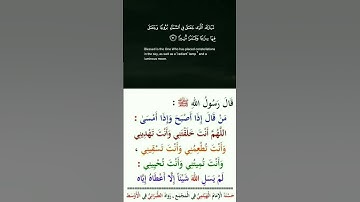 تَبَارَكَ ٱلَّذِى جَعَلَ فِى ٱلسَّمَآءِ بُرُوجًا وَجَعَلَ
فِيهَا سِرَٰجًا وَقَمَرًا مُّنِيرًا
Blessed is the One Who has placed constellations
in the sky, as well as a ˹radiant˺ lamp and a
luminous moon.
قَالَ رَسُولُ اللهِ ﷺ :
مَنْ قَالَ إِذَا أَصْبَحَ وَإِذَا أَمْسَىٰ :
اللَّهُمَّ أَنْتَ خَلَقْتَنِي وَأَنْتَ تَهْدِينِي
وَأَنْتَ تُطْعِمُنِي وَأَنْتَ تَسْقِينِي ،
وَأَنْتَ تُمِيتُنِي وَأَنْتَ تُحْيِينِي :
لَمْ يَسَلِ اللهَ شَيْئًا إِلَّا أَعْطَاهُ إِيَّاه
حسنه الإمام الهيثمي في المجمع ، رواه الطبراني في الأوسط